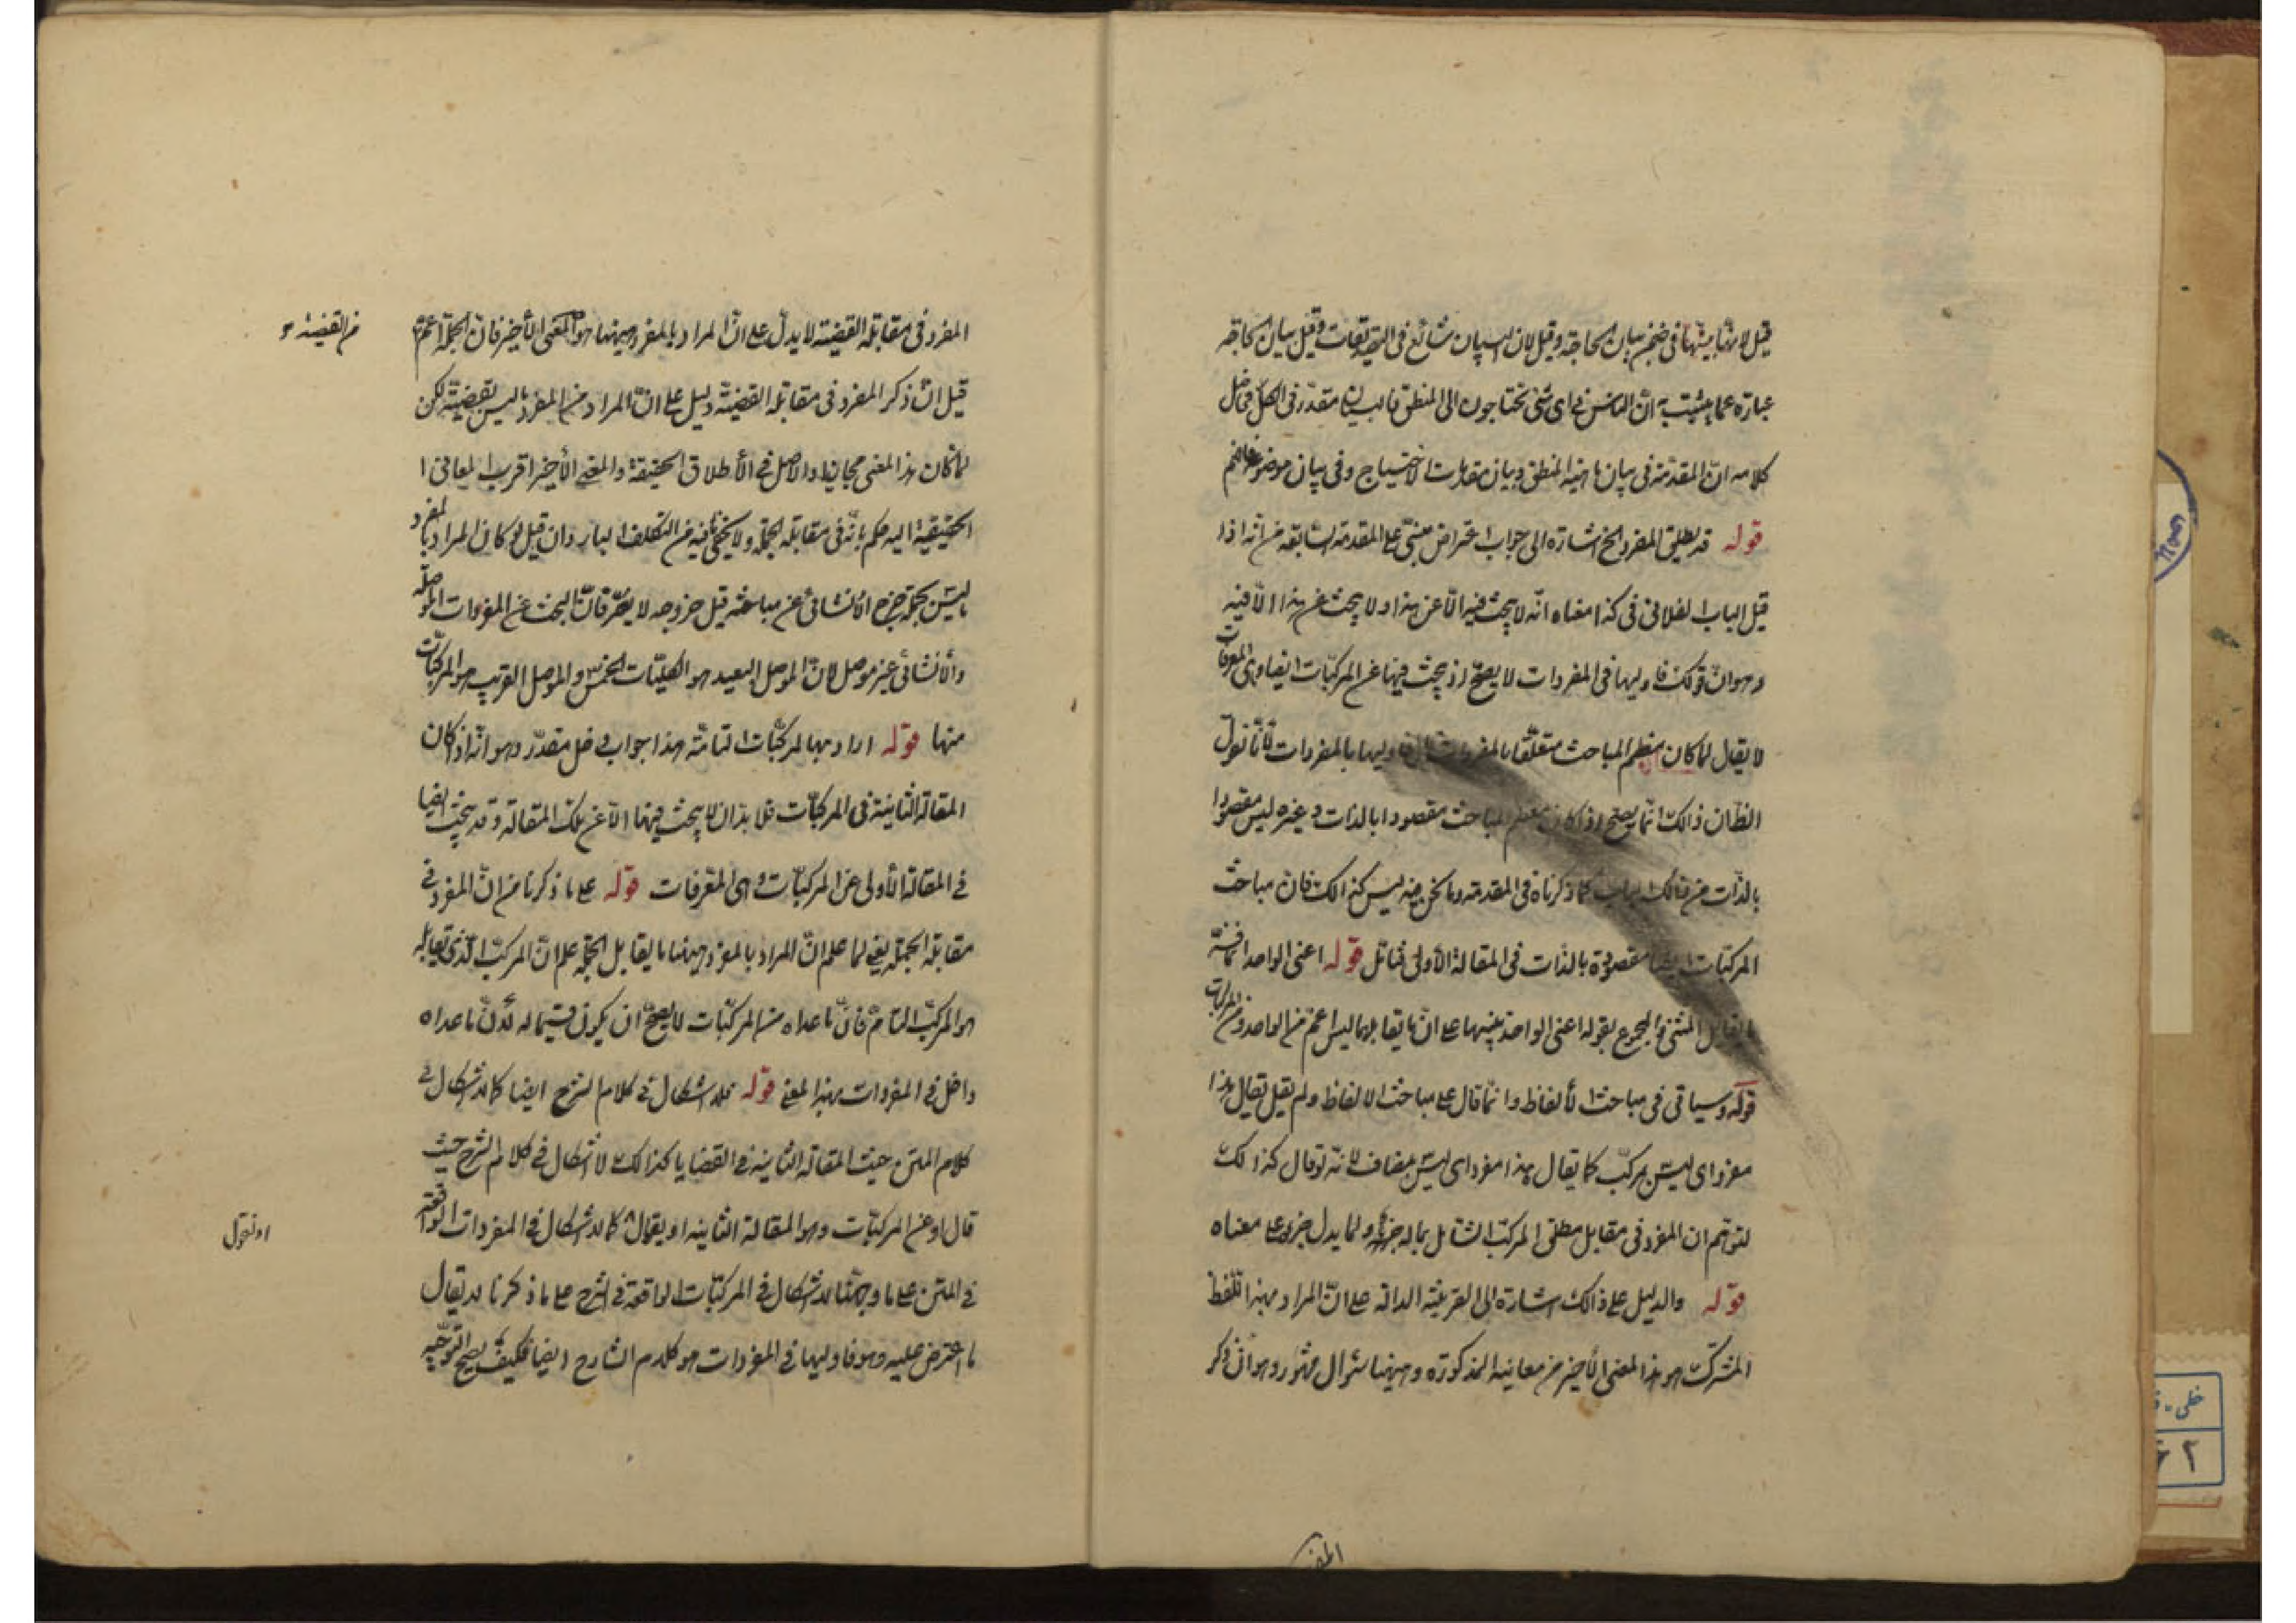 قيل لانها بينها في ضمن بيان الحاجة وقيل لان البيان شائع في التصديقات وقيل بيان الحاجة
عبارة عما يثبت به ان الناس في اى شئ يحتاجون الى المنطق
كلامه ان المقدمة في بيان ماهية المنطق وبيان الاحتياج وفي بيان موضوع
قوله قد يطلق المفرد الخ اشارة الى جواب اعتراض مبنى على المقدمة السابقة من انه اذا
قيل الباب الفلانى فى كذا معناه انه لا يبحث فيه الا عن هذا ولا يبحث عن هذا الا فيه
وهو ان قولك فاوليها فى المفردات لا يصح اذ يبحث فيها عن المركبات ايضا وهى المعرفات
لا يقال لما كان معظم المباحث متعلقا بالمفردات اوليها بالمفردات لانا نقول
الظان ذالك انما يصح اذا كان معظم المباحث مقصودا بالذات وغيره ليس مقصودا
بالذات من ذالك الباب كما ذكرناه فى المقدمة وما نحن فيه ليس كذالك فان مباحث
المركبات ايضا مقصودة بالذات فى المقالة الأولى فتأمل قوله اعنى الواحد
ما يقابل المثنى والمجموع بقوله اعنى الواحد تنبيها على ان ما يقابلهما ليس اعم من الواحد ومن المركبات
قوله وسياتى فى مباحث الألفاظ وانما قال على مباحث الالفاظ ولم يقل يقال هذا
مفرد اى ليس بمركب كما يقال هذا مفرد اى ليس بمضاف لانه لو قال كذالك
لتوهم ان المفرد فى مقابل مطلق المركب الشامل بماله جزء ولما يدل جزءه على معناه
قوله والدليل على ذالك اشارة الى القرينة الدالة على ان المراد بهذا اللفظ
المشترك هو هذا المعنى الأخير من معانيه المذكورة وههنا سؤال مشهور وهو ان ذكر
المفرد فى مقابلة القضية لا يدل على ان المراد بالمفرد ههنا هو المعنى الأخير فان الجملة اعم
من القضية
قيل ان ذكر المفرد فى مقابلة القضية دليل على ان المراد من المفرد ما ليس بقضية لكن
لما كان هذا المعنى مجازيا والاصل فى الأطلاق الحقيقة والمعنى الأخير اقرب المعانى ا
الحقيقية اليه حكم بانه فى مقابلة الجملة ولا يخفى ما فيه من التكلف البارد وان قيل لو كان المراد بالمفرد
ما ليس بجملة خرج الانشائى عن مباحثه قيل خروجه لا يضر فان البحث عن المفردات الموصلة
والأنشائى غير موصل لان الموصل البعيد هو الكليات الخمس والموصل القريب هو المركبات
منها قوله اراد بها المركبات التامة هذا جواب دخل مقدر وهو انه اذا كان
المقالة الثانية فى المركبات فلا بد ان لا يبحث فيها الا عن تلك المقالة وقد يبحث ايضا
فى المقالة الأولى عن المركبات وهى المعرفات قوله على ما ذكرنا من ان المفرد فى
مقابلة الجملة يعنى لما علم ان المراد بالمفرد ههنا ما يقابل الجملة علم ان المركب الذى يقابله
هو المركب التام فان ما عداه من المركبات لا يصح ان يكون قسيما له لأن ما عداه
داخل فى المفردات بهذا المعنى قوله فلا اشكال فى كلام الشرح ايضا كما لا اشكال فى
كلام المتن حيث المقالة الثانية فى القضايا كذالك لا اشكال فى كلام الشرح حيث
قال او عن المركبات وهو المقالة الثانية او يقال كما لا اشكال فى المفردات الواقعة
او نقول
فى المتن على ما وجهنا لا اشكال فى المركبات الواقعة فى الشرح على ما ذكرنا لا يقال
ما اعترض عليه وهو فاوليها فى المفردات هو كلام الشارح ايضا فكيف يصح التوجيه